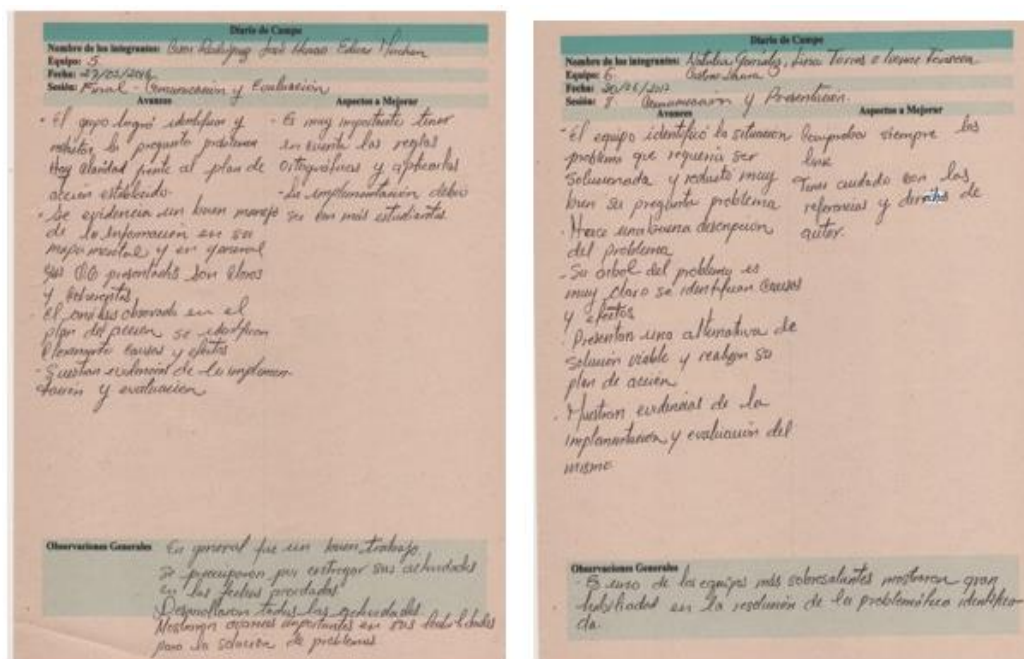 Diario de Campo
Nombre de los integrantes: Cesar Rodriguez José Edison
Equipo: 5
Fecha: 27/05/2016
Sesión: Final - Comunicación y Evaluación
Avances
- El grupo logró identificar y
redactar la pregunta problema
Hay claridad frente al plan de
acción establecido.
- Se evidencia un buen manejo
de la información en su
mapa mental y en general
sus presentados son claros
y coherentes
El análisis observado en el
plan de acción se identifican
claramente causas y efectos
- evidencias de la implemen-
tación y evaluación
Aspectos a Mejorar
- Es muy importante tener
en cuenta las reglas
ortográficas y aplicarlas
- La implementación debió
ser con más estudiantes
Observaciones Generales En general fue un buen trabajo
se preocuparon por entregar sus actividades
en las fechas
Desarrollaron todas las actividades
Mostraron avances importantes en sus habilidades
para la solución de problemas
Diario de Campo
Nombre de los integrantes: Natalia Gonzales, Lina Torres
Equipo: 6
Fecha: 20/05/2017
Sesión: 8. Comunicación y Presentación.
Avances
- El equipo identificó la situación
problema que requería ser
solucionada y redactó muy
bien su pregunta problema
- Hace una buena descripción
del problema
- Su árbol del problema es
muy claro se identifican causas
y efectos
- Presentan una alternativa de
solución viable y realizan su
plan de acción
- Muestran evidencias de la
implementación y evaluación del
mismo
Aspectos a Mejorar
Comprobar siempre los
link
Tener cuidado con las
referencias y derechos de
autor.
Observaciones Generales
- Es uno de los equipos más sobresalientes mostraron gran
habilidad en la resolución de la problemática identifica-
da.